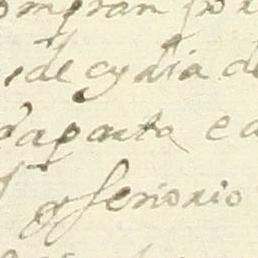 ompran por
de cydia de
daparta e a
o senorio